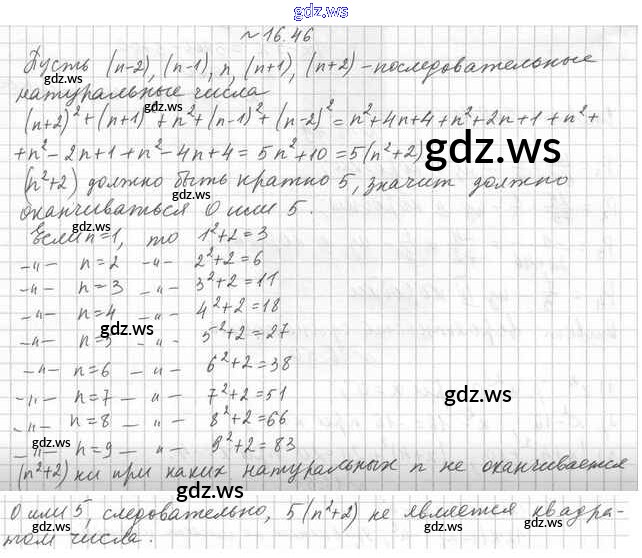 gdz.ws
№ 16.46
Пусть (n-2), (n-1), n, (n+1), (n+2) - последовательные
gdz.ws
натуральные числа
gdz.ws
(n+2)² + (n+1)² + n² + (n-1)² + (n-2)² = n² + 4n + 4 + n² + 2n + 1 + n² +
+ n² - 2n + 1 + n² - 4n + 4 = 5n² + 10 = 5(n² + 2)
gdz.ws
gdz.ws
(n²+2) должно быть кратно 5, значит должно
оканчиваться 0 или 5.
gdz.ws
Если n=1, то 1²+2=3
-"- n=2 -"- 2²+2=6
gdz.ws
-"- n=3 -"- 3²+2=11
-"- n=4 -"- 4²+2=18
gdz.ws
-"- n=5 -"- 5²+2=27
-"- n=6 -"- 6²+2=38
-"- n=7 -"- 7²+2=51
gdz.ws
-"- n=8 -"- 8²+2=66
gdz.ws
-"- n=9 -"- 9²+2=83
(n²+2) ни при каких натуральных n не оканчивается
gdz.ws
0 или 5, следовательно, 5(n²+2) не является квадра-
gdz.ws
том числа.
gdz.ws